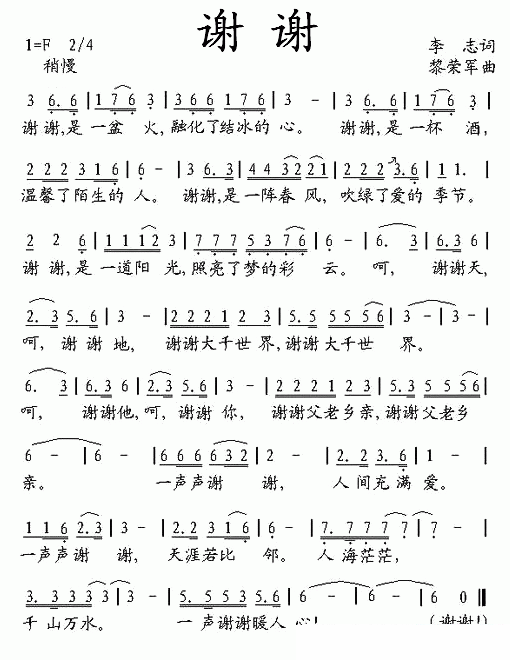 谢 谢
1=F 2/4 李 志词
稍慢 黎荣军曲
3 6. 6 | 1 7 6 3 | 6 6 6 1 7 6 | 3 - | 3 6. 6 | 1 7 6 3 |
谢谢,是 一盆 火,融化了结冰的 心。 谢谢,是 一杯 酒,
2 2 2 3 1 6 | 6 - | 3 6. 3 | 4 4 3 2 2 1 | 2 2 2 3. 6 | 1 1. |
温馨了陌生的 人。 谢谢,是 一阵春 风, 吹绿了爱的 季节。
2 2 6 | 1 1 1 2 3 | 7 7 7 5 3 7 6 | 6 - | 6. 3 | 6. 3 6 |
谢 谢,是 一道阳 光,照亮了梦的彩 云。 呵, 谢谢天,
2. 3 5. 6 | 3 - | 2 2 2 1 2 3 | 5 5 5 5. 6 | 3 - | 3 - |
呵, 谢 谢 地, 谢谢大千世 界,谢谢大千世 界。
6. 3 | 6. 3 6 | 2. 3 5. 6 | 3 - | 2 2 2 2 1 2 3 | 5. 3 5 5 5 6 |
呵, 谢谢他,呵, 谢谢 你, 谢谢父老乡亲,谢谢父老乡
6 - | 6 - | 6 6 6 6 3 2 | 3 - | 2. 2 3. 6 | 1 - |
亲。 一声声谢 谢, 人间充满 爱。
1 1 6 2. 3 | 3 - | 2 2 2 3 1 6 | 6 - | 7. 7 7 7 7 | 7 7 |
一声声谢 谢, 天涯若比 邻。 人 海茫茫,
3. 3 3 3 3 | 3 - | 5. 5 5 5 3 5 6 | 6 - | 6 - | 6 0 ‖
千 山万水。 一 声谢谢暖人 心! (谢谢!)